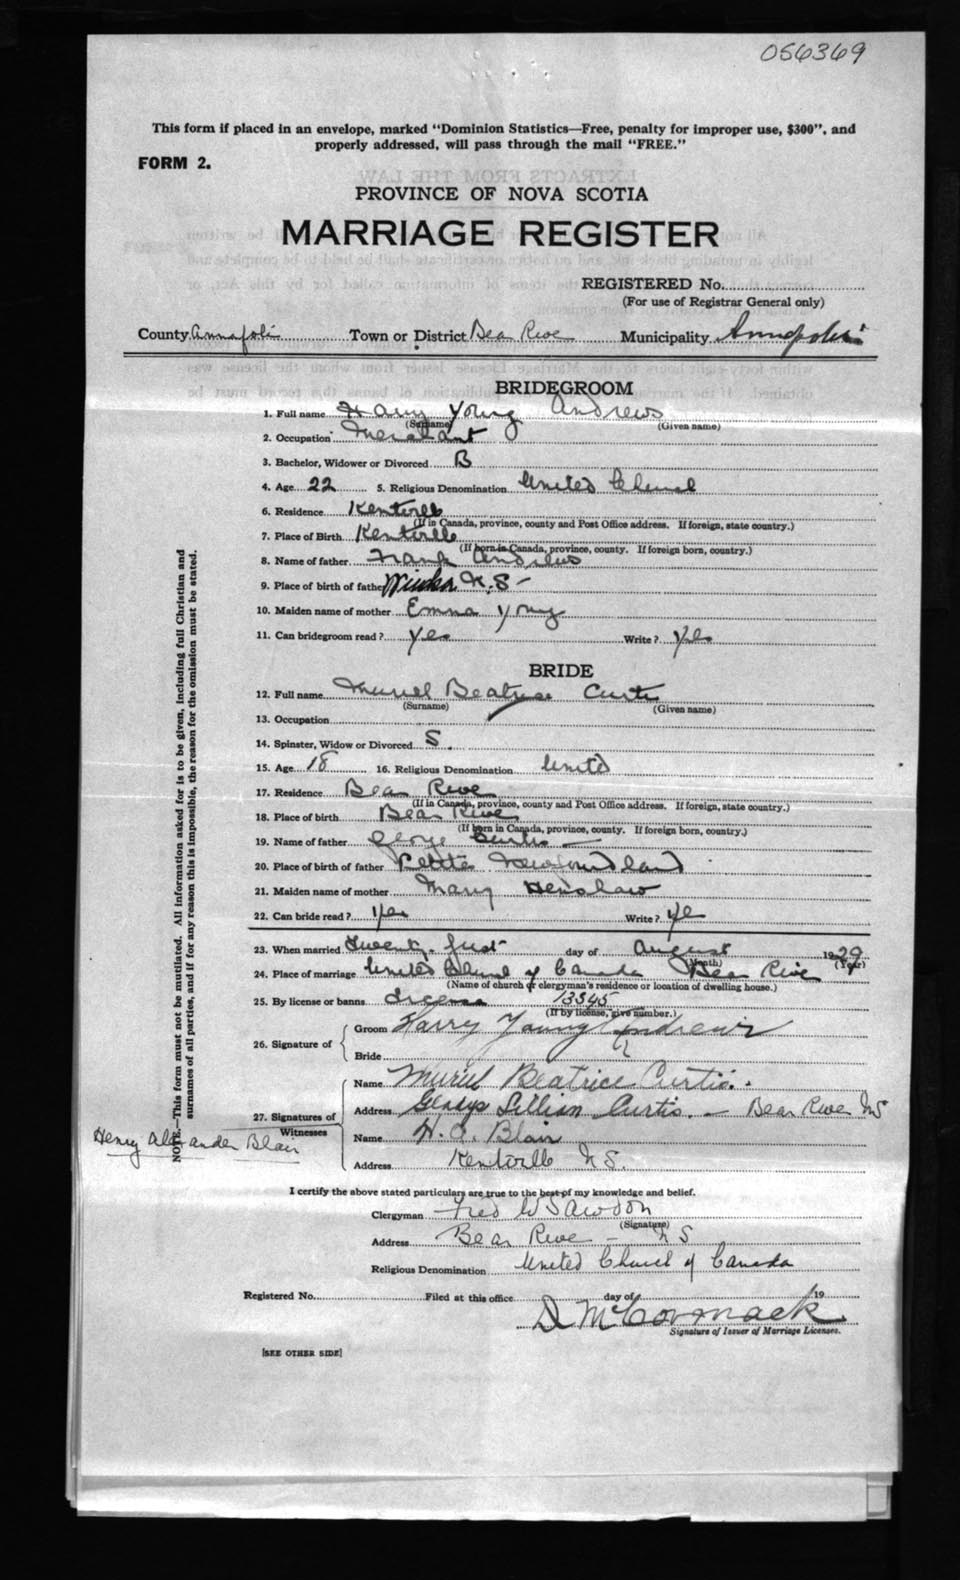 056369
This form if placed in an envelope, marked "Dominion Statistics—Free, penalty for improper use, $300", and
properly addressed, will pass through the mail "FREE."
FORM 2.
PROVINCE OF NOVA SCOTIA
MARRIAGE REGISTER
REGISTERED No.
(For use of Registrar General only)
County Annapolis Town or District Bear River Municipality Annapolis
BRIDEGROOM
1. Full name Harry Young Andrews
(Surname) (Given name)
2. Occupation Merchant
3. Bachelor, Widower or Divorced B
4. Age 22 5. Religious Denomination United Church
6. Residence Kentville
(If in Canada, province, county and Post Office address. If foreign, state country.)
7. Place of Birth Kentville
(If born in Canada, province, county. If foreign born, country.)
8. Name of father Frank Andrews
9. Place of birth of father N.S-
10. Maiden name of mother Emma Young
11. Can bridegroom read? Yes Write? Yes
BRIDE
12. Full name Muriel Beatrice Curtis
(Surname) (Given name)
13. Occupation
14. Spinster, Widow or Divorced S.
15. Age 18 16. Religious Denomination United
17. Residence Bear River
(If in Canada, province, county and Post Office address. If foreign, state country.)
18. Place of birth Bear River
(If born in Canada, province, county. If foreign born, country.)
19. Name of father George Curtis —
20. Place of birth of father Newfoundland
21. Maiden name of mother Mary Henshaw
22. Can bride read? Yes Write? Ye
23. When married Twenty-first day of August 1929
(Month) (Year)
24. Place of marriage United Church of Canada Bear River
(Name of church or clergyman's residence or location of dwelling house.)
25. By license or banns License 13345
(If by license, give number.)
26. Signature of
Groom Harry Young Andrews
Bride
27. Signatures of Witnesses
Name Muriel Beatrice Curtis.
Address Gladys Lillian Curtis. — Bear River NS
Name H. A. Blair
Address Kentville N S.
Henry Alexander Blair
I certify the above stated particulars are true to the best of my knowledge and belief.
Clergyman Fred W Sawdon
(Signature)
Address Bear River — N S
Religious Denomination United Church of Canada
Registered No. Filed at this office day of 19
D McCormack
Signature of Issuer of Marriage Licenses.
[SEE OTHER SIDE]
NOTE.—This form must not be mutilated. All information asked for is to be given, including full Christian and
surnames of all parties, and if for any reason this is impossible, the reason for the omission must be stated.